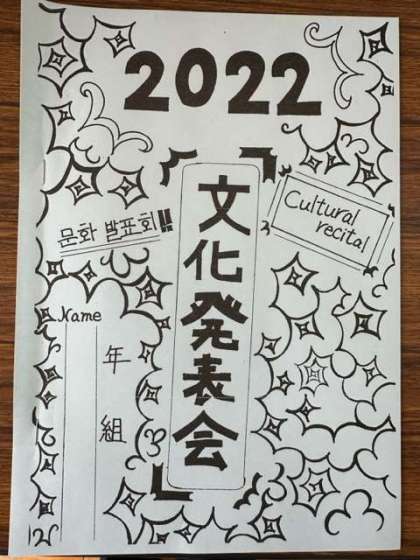 2022
文化発表会
Cultural
recital
문화 발표회!!
Name
年
組